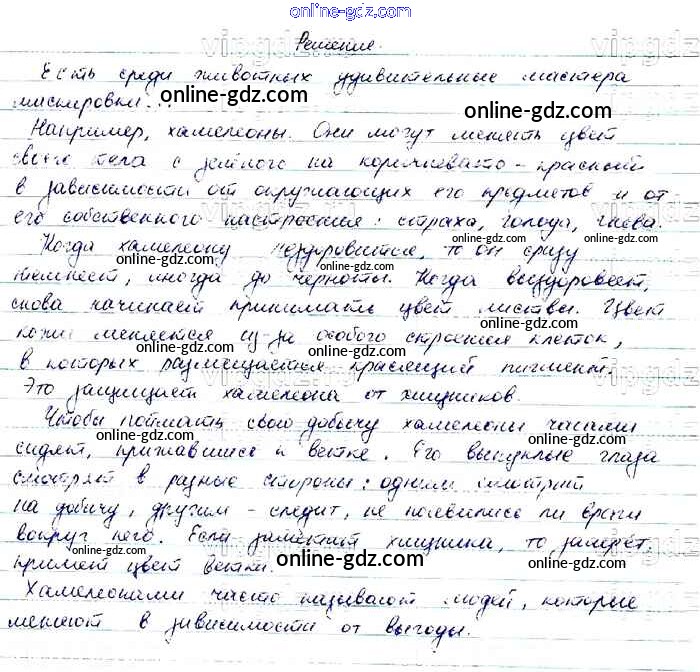 online-gdz.com
Решение.
Есть среди животных удивительные мастера
маскировки...
Например, хамелеоны. Они могут менять цвет
своего тела с зелёного на коричневато-красный
в зависимости от окружающих его предметов и от
его собственного настроения: страха, голода, гнева.
Когда хамелеону нездоровится, то он сразу
темнеет, иногда до черноты. Когда выздоровеет,
снова начинает принимать цвет листвы. Цвет
кожи меняется из-за особого строения клеток,
в которых размещается красящий пигмент.
Это защищает хамелеона от хищников.
Чтобы поймать свою добычу хамелеоны часами
сидят, прижавшись к ветке. Его выпуклые глаза
смотрят в разные стороны: одним смотрит
на добычу, другим - следит, не появились ли враги
вокруг него. Если заметит хищника, то замрёт,
примет цвет ветки.
Хамелеонами часто называют людей, которые
меняют в зависимости от выгоды.